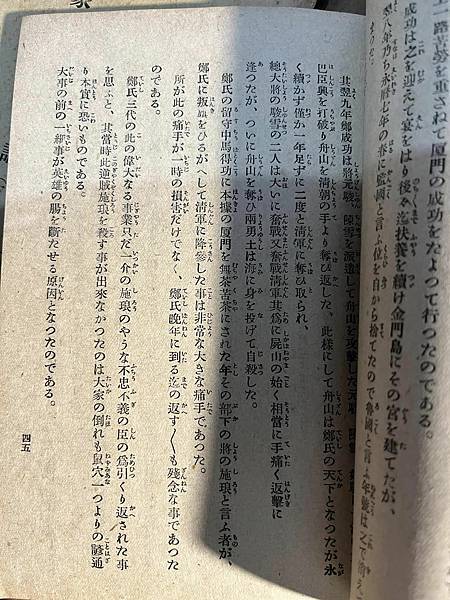 上一路苦勞を重さねて厦門の成功をたよつて行つたのである。
成功は之を迎えて宴をはり後迄扶養を續け金門島にその宮を建てたが、
翌八年乃ち永曆七年の春に監國と言ふ位を自から捨てたので魯國と言ふ年號は之で消え
其翌九年鄭成功は將元駿、陳雪を派遣して舟山を攻擊した元駿
巴臣興を打破り舟山を清朝の手より奪ひ返した。此樣にして舟山は鄭氏の天下となつたが永
く續かず僅か一年足ずに二度と清軍に奪ひ取られ、
總大將の駿雪の二人は大いに奮戰又奮戰清軍其爲に屍山の始く相當に手痛く返擊に
逢つたが、ついに舟山を奪れ兩勇士は海に身を投げて自殺した。
鄭氏の留守中馬得功に本據の厦門を無茶苦茶にされた年その部下の將の施琅と言ふ者が、
鄭氏に叛旗をひるがへして清軍に降參した事は非常な大きな痛手であつた。
所が此の痛手が一時の損害だけでなく、鄭氏晚年に到る迄の返す〱も殘念な事であつた
のである。
鄭氏三代の此の偉大なる事業只だ一介の施琅のやうな不忠不義の臣の爲引くり返された事
を思ふと、其當時此逆賊施琅を殺す事が出來なかつたのは大家の倒れも鼠穴一つよりの諺通
り本實に恐いものである。
大事の前の一細事が英雄の腸を斷たせる原因となつたのである。
四五